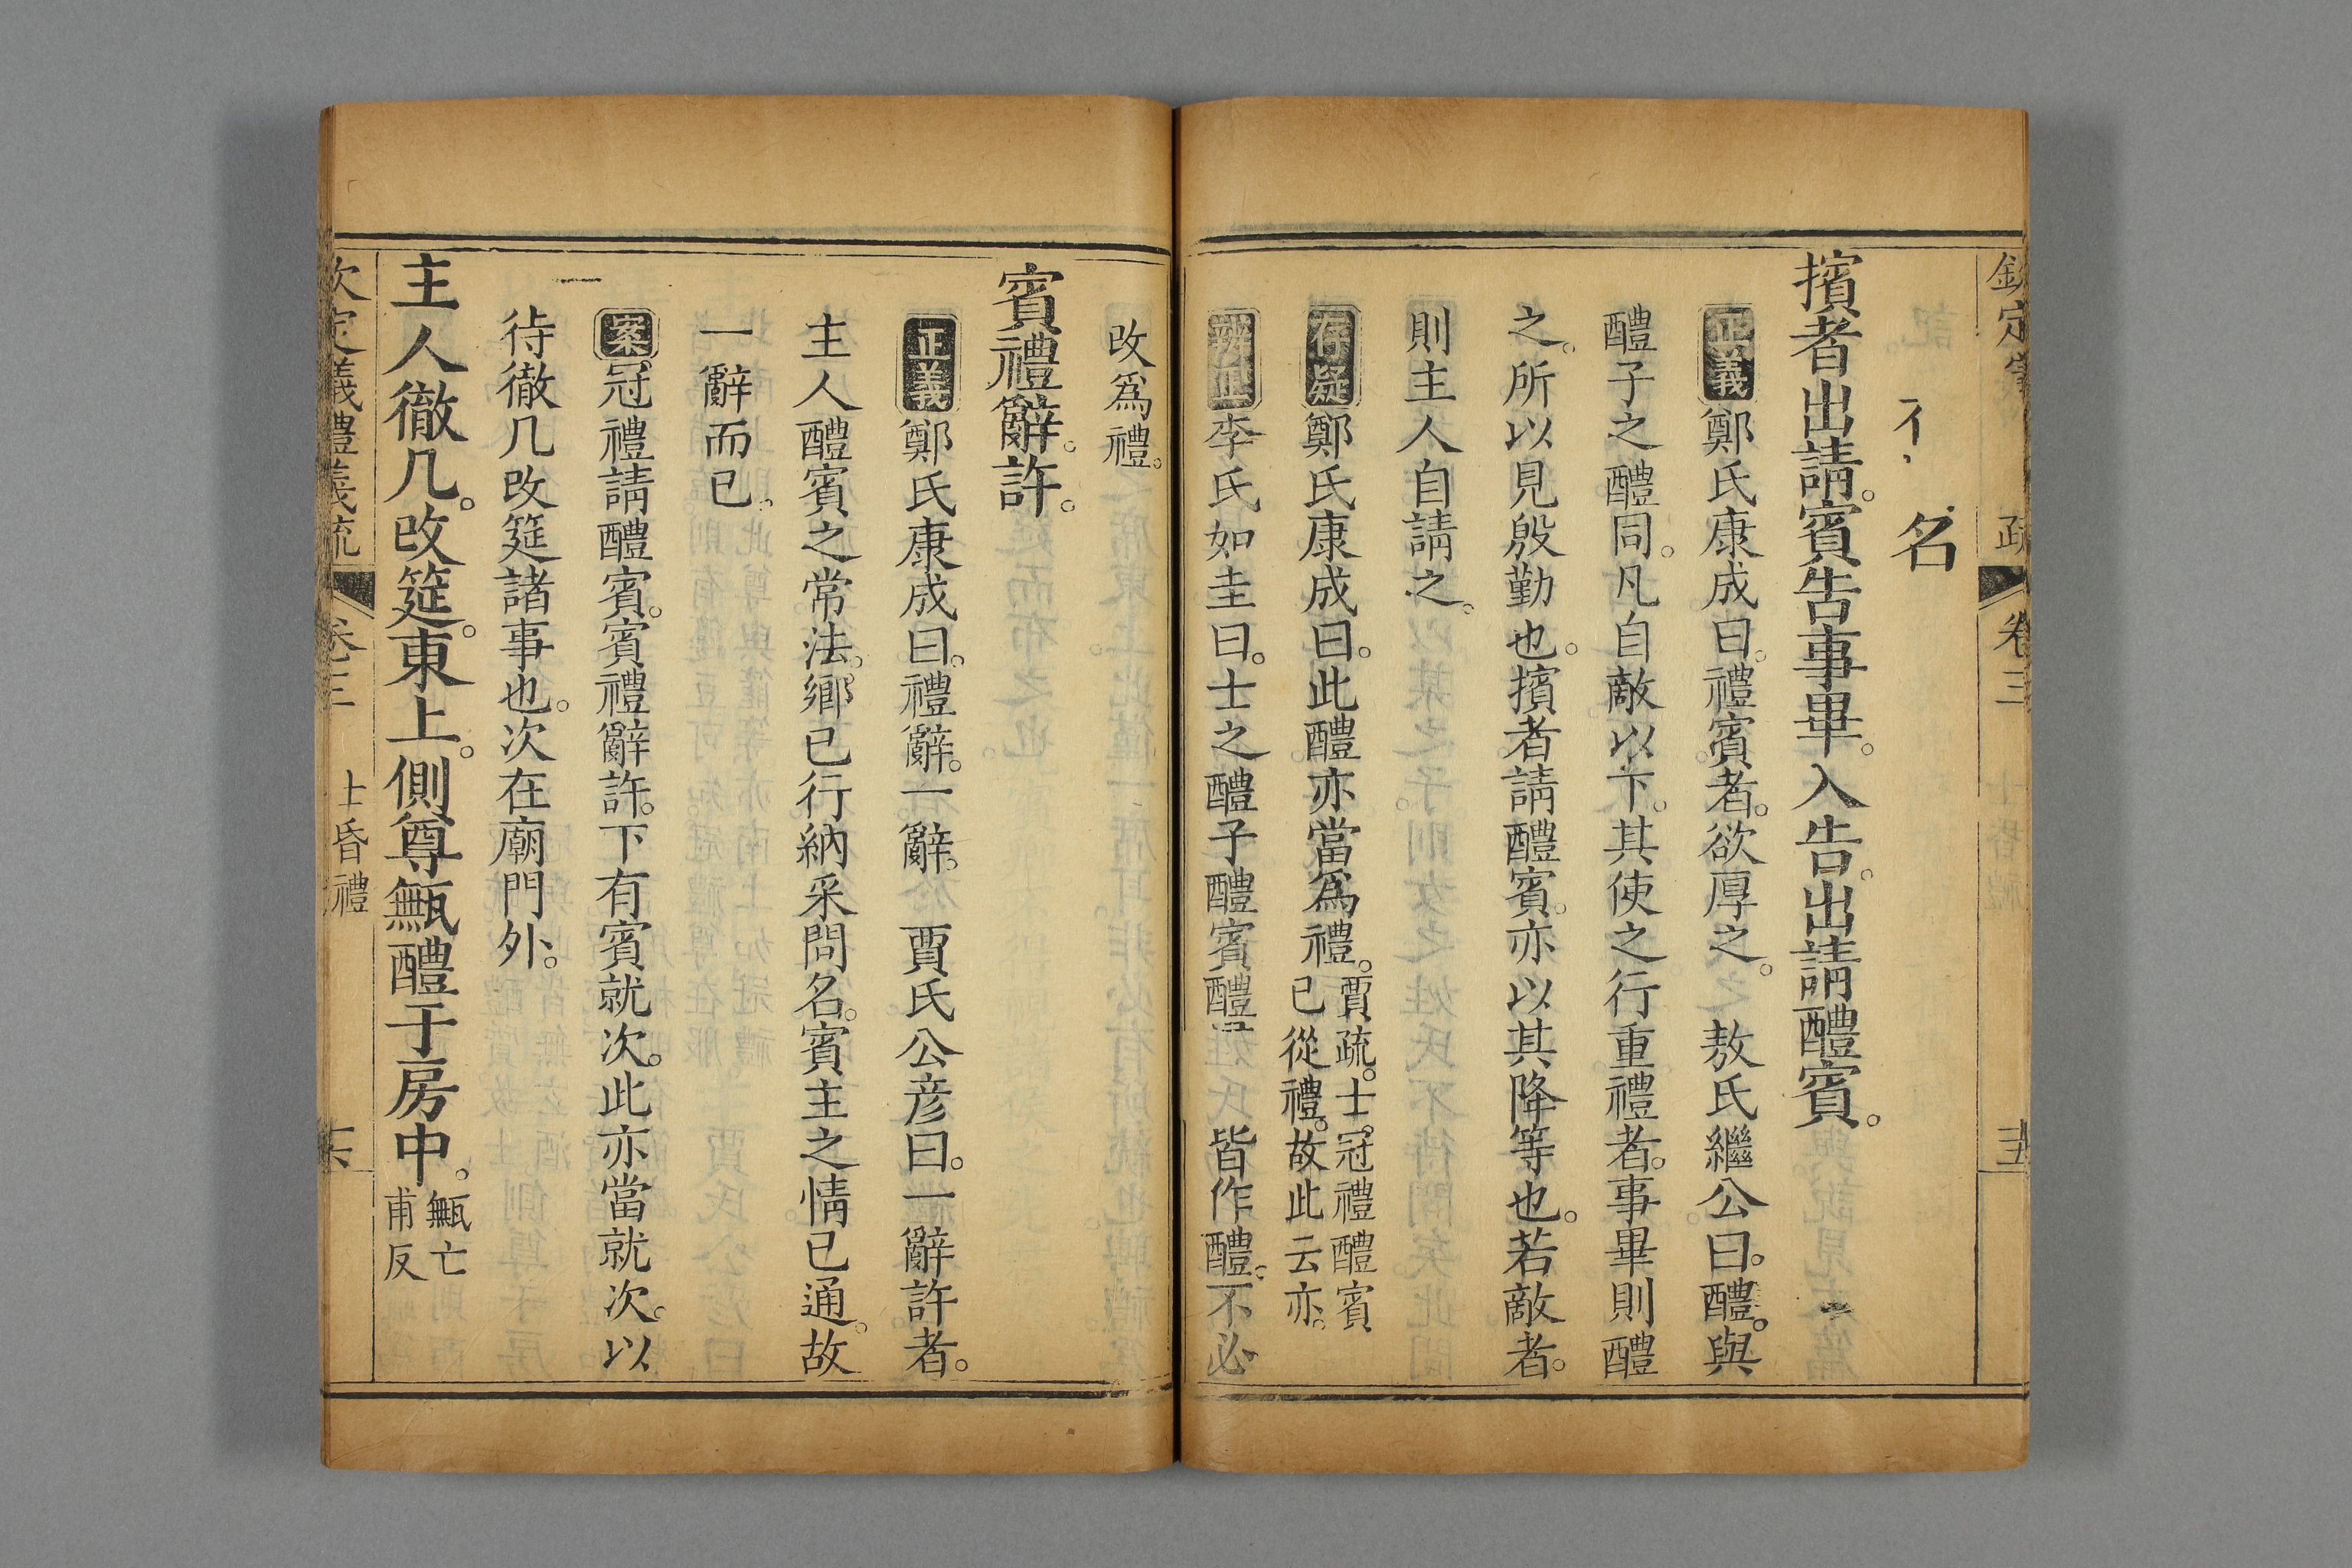 名
擯者出請。賓告事畢。入告。出請醴賓。
正義鄭氏康成曰。禮賓者。欲厚之。 敖氏繼公曰。醴。與
醴子之醴同。凡自敵以下。其使之行重禮者。事畢則醴
之。所以見殷勤也。擯者請醴賓。亦以其降等也。若敵者。
則主人自請之。
存疑鄭氏康成曰。此醴亦當爲禮。賈疏。士。冠禮醴賓
已從禮。故此云亦。
辨正李氏如圭曰。士之醴子醴賓醴 皆作醴。不必
改爲禮。
賓禮辭。許。
正義鄭氏康成曰。禮辭。一辭。 賈氏公彦曰。一辭許者。
主人醴賓之常法。鄉已行納采問名。賓主之情已通。故
一辭而已。
案冠禮請醴賓。賓禮辭許。下有賓就次。此亦當就次。以
待徹几改筵諸事也。次在廟門外。
主人徹几。改筵。東上。側尊甒醴于房中。甒亡
甫反
欽定儀禮義疏 卷三 士昏禮